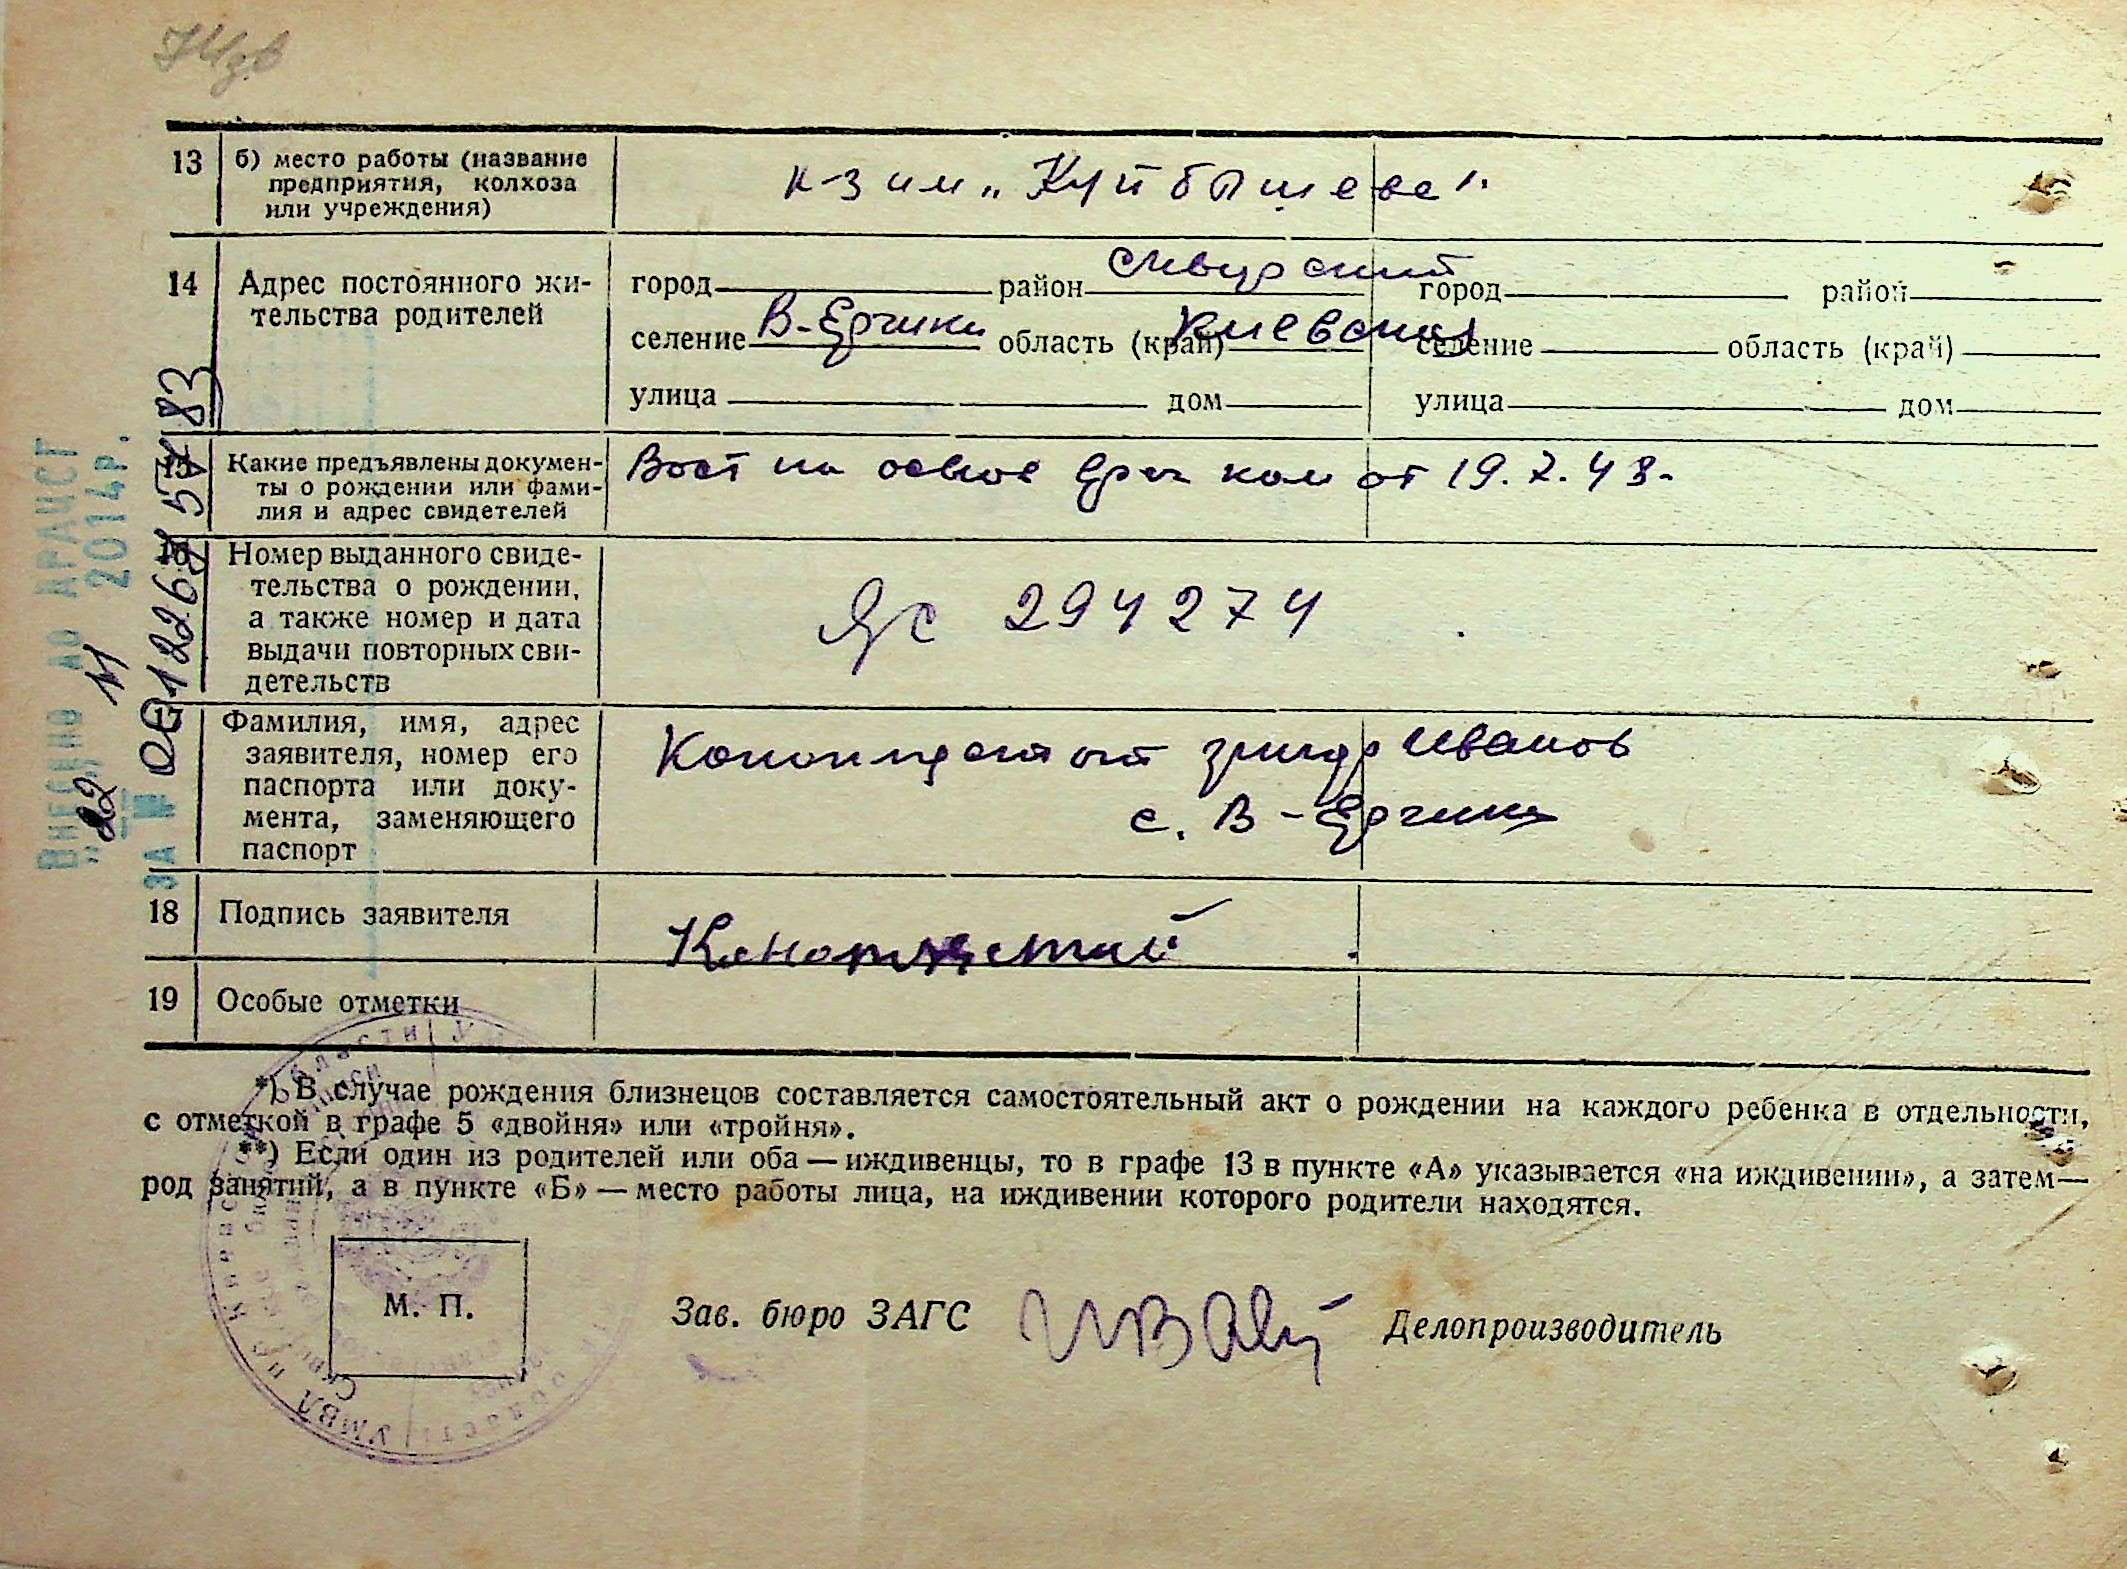 13 б) место работы (название
предприятия, колхоза
или учреждения)
к-з им „Куйбышева".
14 Адрес постоянного жи-
тельства родителей
город район город район
селение В-Ерчики область (край) Киевская селение область (край)
улица дом улица дом
15 Какие предъявлены докумен-
ты о рождении или фами-
лия и адрес свидетелей
Вост на основ врач ком от 19.7.48.
16 Номер выданного свиде-
тельства о рождении,
а также номер и дата
выдачи повторных сви-
детельств
ЯС 294274
17 Фамилия, имя, адрес
заявителя, номер его
паспорта или доку-
мента, заменяющего
паспорт
Иванов
с. В-Ерчики
18 Подпись заявителя
19 Особые отметки
*) В случае рождения близнецов составляется самостоятельный акт о рождении на каждого ребенка в отдельности,
с отметкой в графе 5 «двойня» или «тройня».
**) Если один из родителей или оба — иждивенцы, то в графе 13 в пункте «А» указывается «на иждивении», а затем—
род занятий, а в пункте «Б» — место работы лица, на иждивении которого родители находятся.
М. П.
Зав. бюро ЗАГС Делопроизводитель
ВНЕСЕНО ДО ДРАЦСГ
„22" VI 2014р.
ЗА №